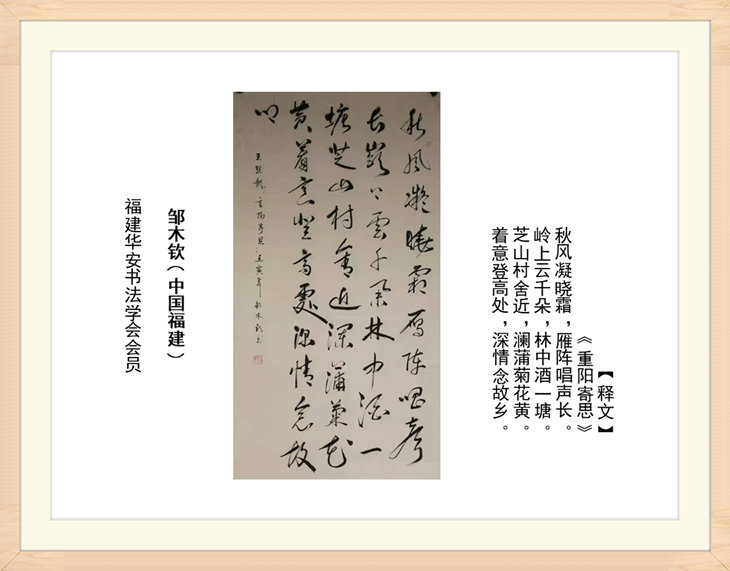 【释文】
《重阳寄思》
秋风凝晓霜，雁阵唱声长。
岭上云千朵，林中酒一塘。
芝山村舍近，澜蒲菊花黄。
着意登高处，深情念故乡。
秋風凝曉霜雁陣唱聲
長嶺上雲千朵林中酒一
塘芝山村舍近瀾蒲菊花
黄着意登高處深情念故
鄉
重陽寄思壬寅年邹木钦
邹木钦（中国福建）
福建华安书法学会会员